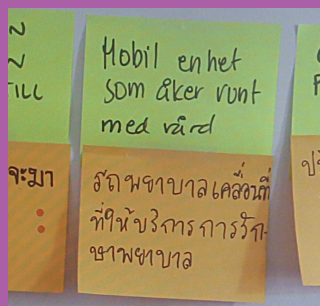 Mobil enhet
som åker runt
med vård
รถพยาบาลเคลื่อนที่
ที่ให้บริการการรัก-
ษาพยาบาล
จะมา